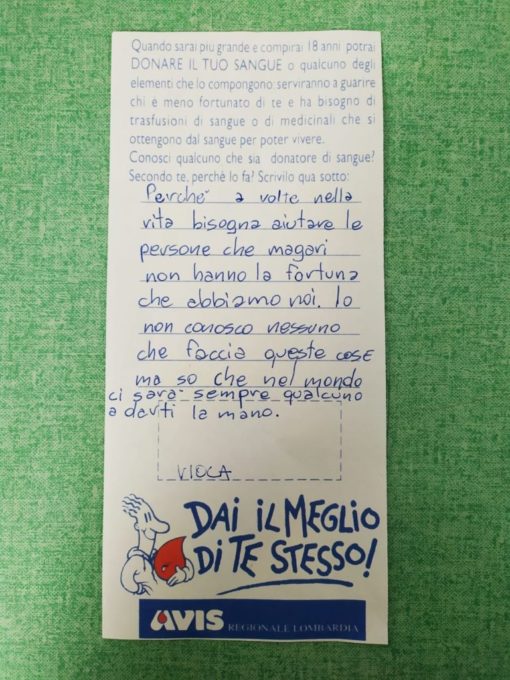 Quando sarai più grande e compirai 18 anni potrai
DONARE IL TUO SANGUE o qualcuno degli
elementi che lo compongono: serviranno a guarire
chi è meno fortunato di te e ha bisogno di
trasfusioni di sangue o di medicinali che si
ottengono dal sangue per poter vivere.
Conosci qualcuno che sia donatore di sangue?
Secondo te, perchè lo fa? Scrivilo qua sotto:
Perchè a volte nella
vita bisogna aiutare le
persone che magari
non hanno la fortuna
che abbiamo noi. Io
non conosco nessuno
che faccia queste cose
ma so che nel mondo
ci sarà sempre qualcuno
a darti la mano.
VIOLA
DAI IL MEGLIO
DI TE STESSO!
AVIS REGIONALE LOMBARDIA